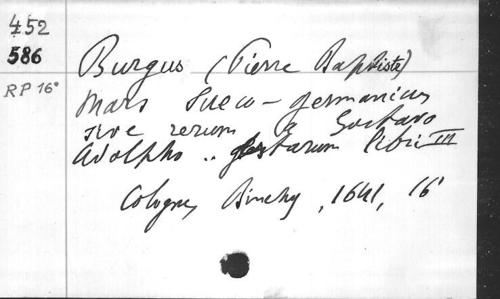 452
586
RP 16°
Burgus (Pierre Baptiste)
Mars Sueco-germanicus
sive rerum a Gustavo
Adolpho .. gestarum libri III
Cologne, Binchy, 1641, 16°